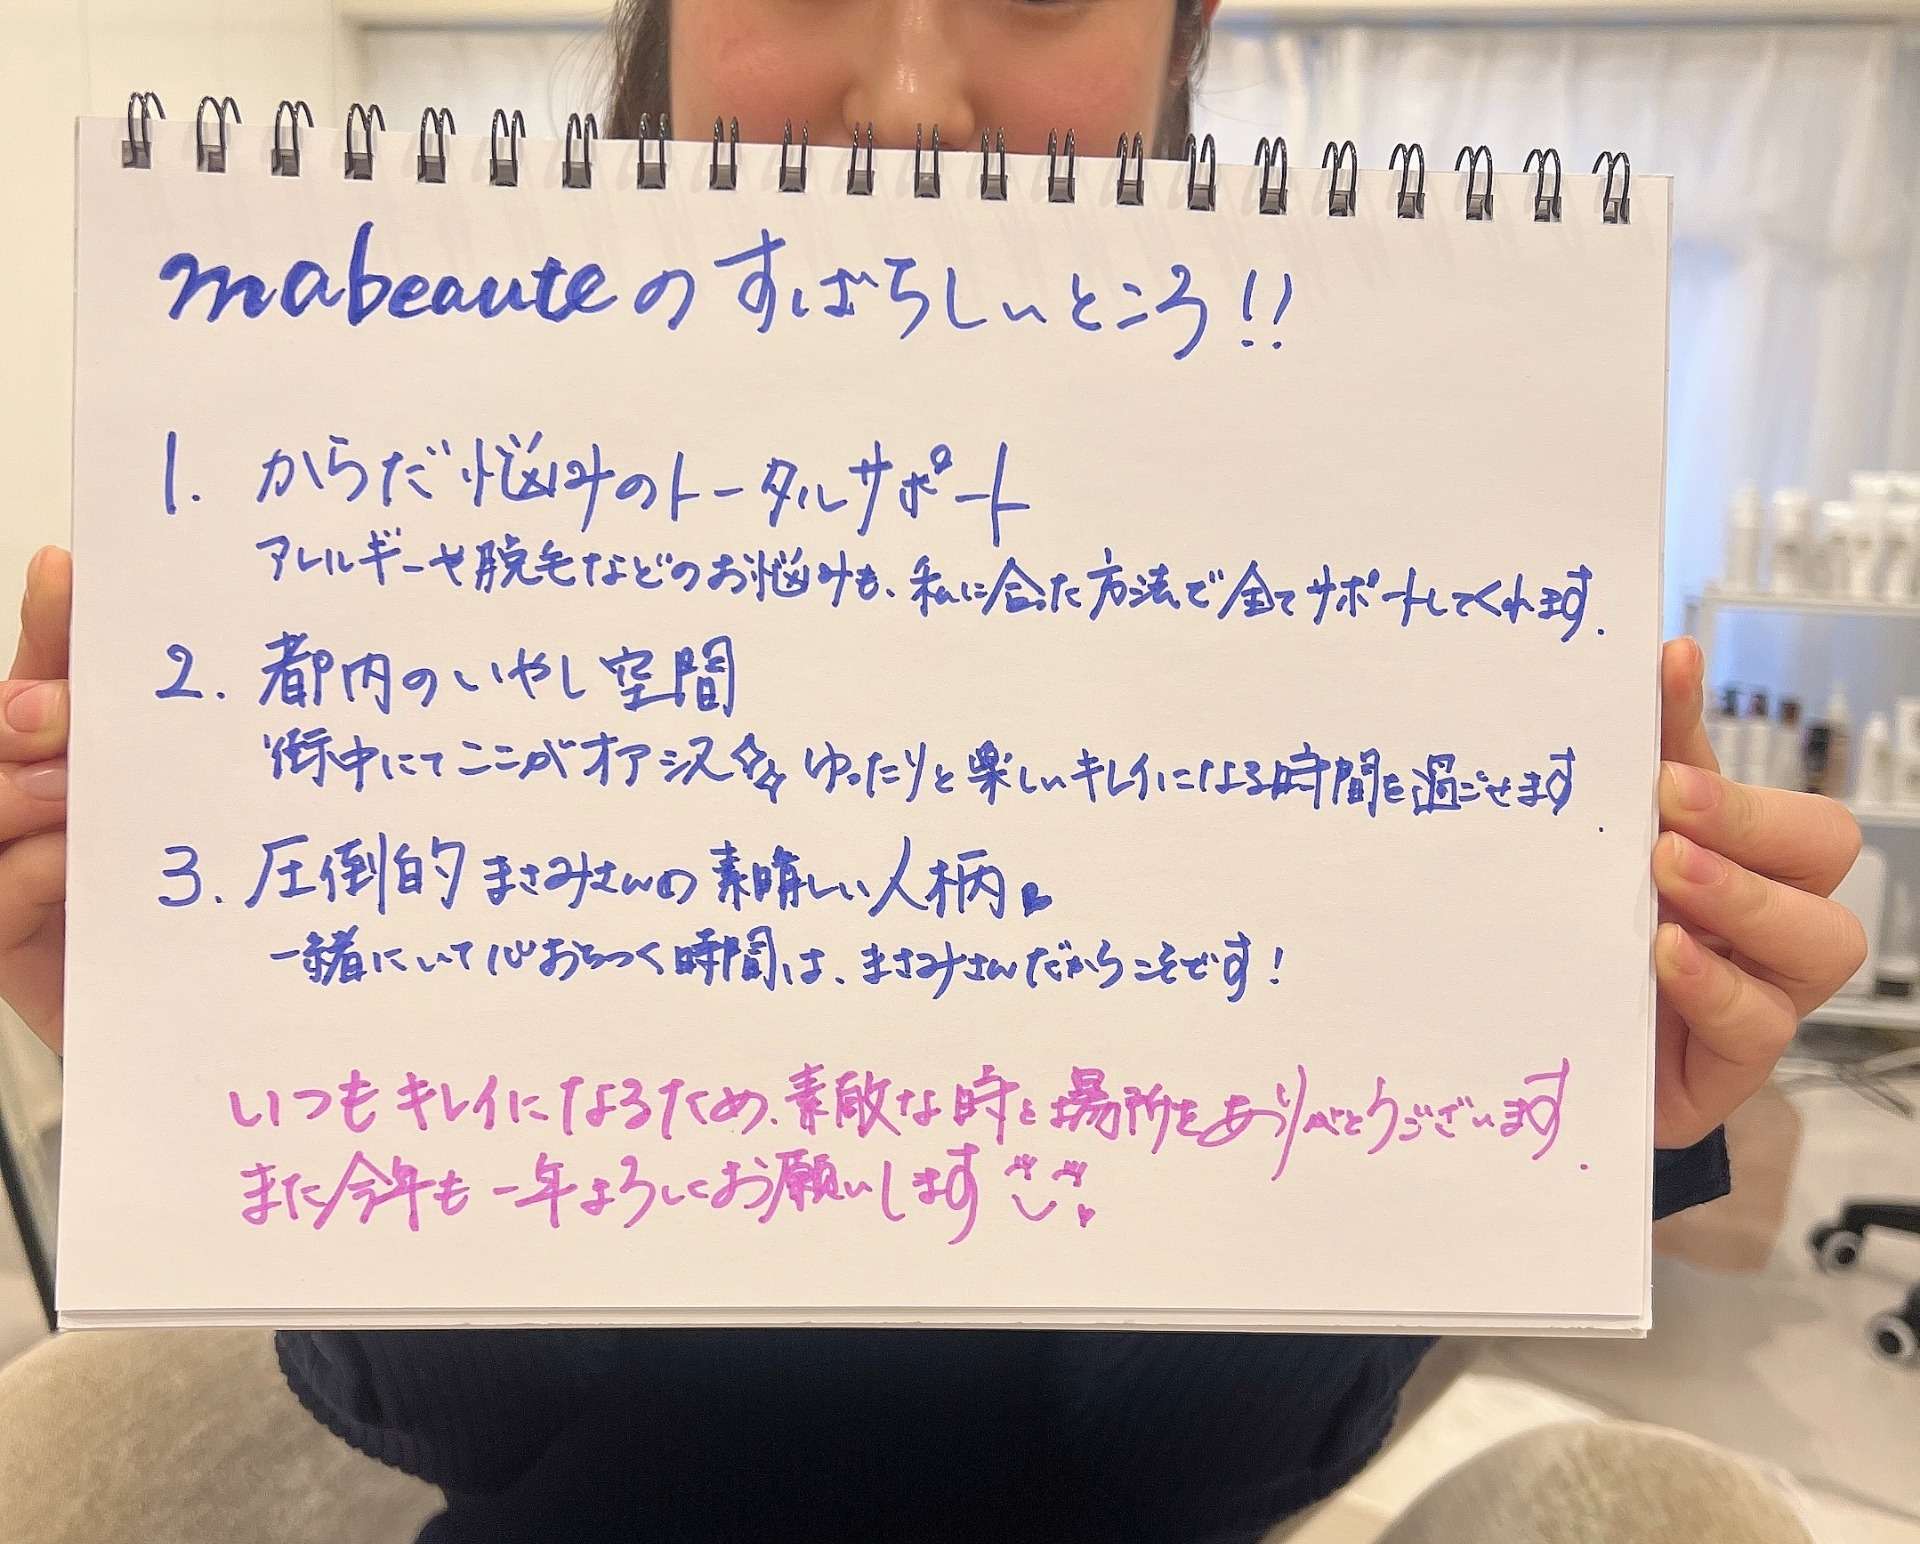 mabeauteのすばらしいところ!!
1. からだ悩みのトータルサポート
アレルギーや脱毛などのお悩みも、私に合った方法で全てサポートしてくれます.
2. 都内のいやし空間
街中にてここがオアシス☆☆ ゆったりと楽しいキレイになる時間を過ごせます.
3. 圧倒的まさみさんの素晴しい人柄♥
一緒にいて心おちつく時間は、まさみさんだからこそです!
いつもキレイになるため、素敵な時と場所をありがとうございます.
また今年も一年よろしくお願いします